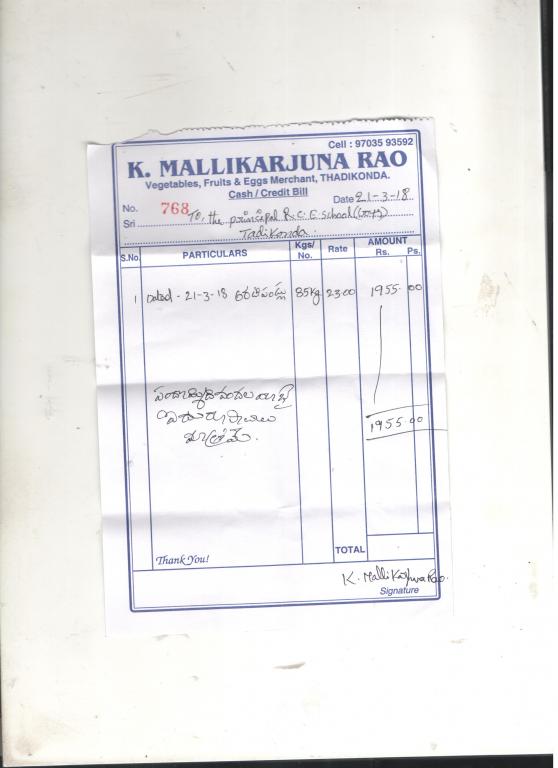 Cell : 97035 93592
K. MALLIKARJUNA RAO
Vegetables, Fruits & Eggs Merchant, THADIKONDA.
Cash / Credit Bill
No. 768 Date 21-3-18
Sri To, the principal R.C.E. school (Boys)
Tadikonda.
S.No. PARTICULARS Kgs/ No. Rate AMOUNT Rs. Ps.
1 Dated - 21-3-18 అరటిపండ్లు 85kg 23.00 1955.00
రూపాయలు
మాత్రమే.
1955.00
Thank You! TOTAL
K. Mallikarjuna Rao.
Signature